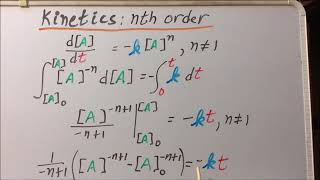 Kinetics: nth order
d[A]/dt = -k[A]^n, n≠1
∫_{[A]_0}^{[A]} [A]^{-n} d[A] = -∫_0^t k dt
[A]^{-n+1}/(-n+1) |_{[A]_0}^{[A]} = -kt, n≠1
1/(-n+1) ([A]^{-n+1} - [A]_0^{-n+1}) = -kt